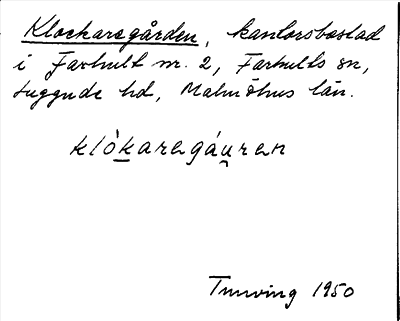 Klockaregården, kantorsbostad
i Farhult nr. 2, Farhults sn,
Luggude hd, Malmöhus län.
klòkaregáu̯ren
Tmving 1950